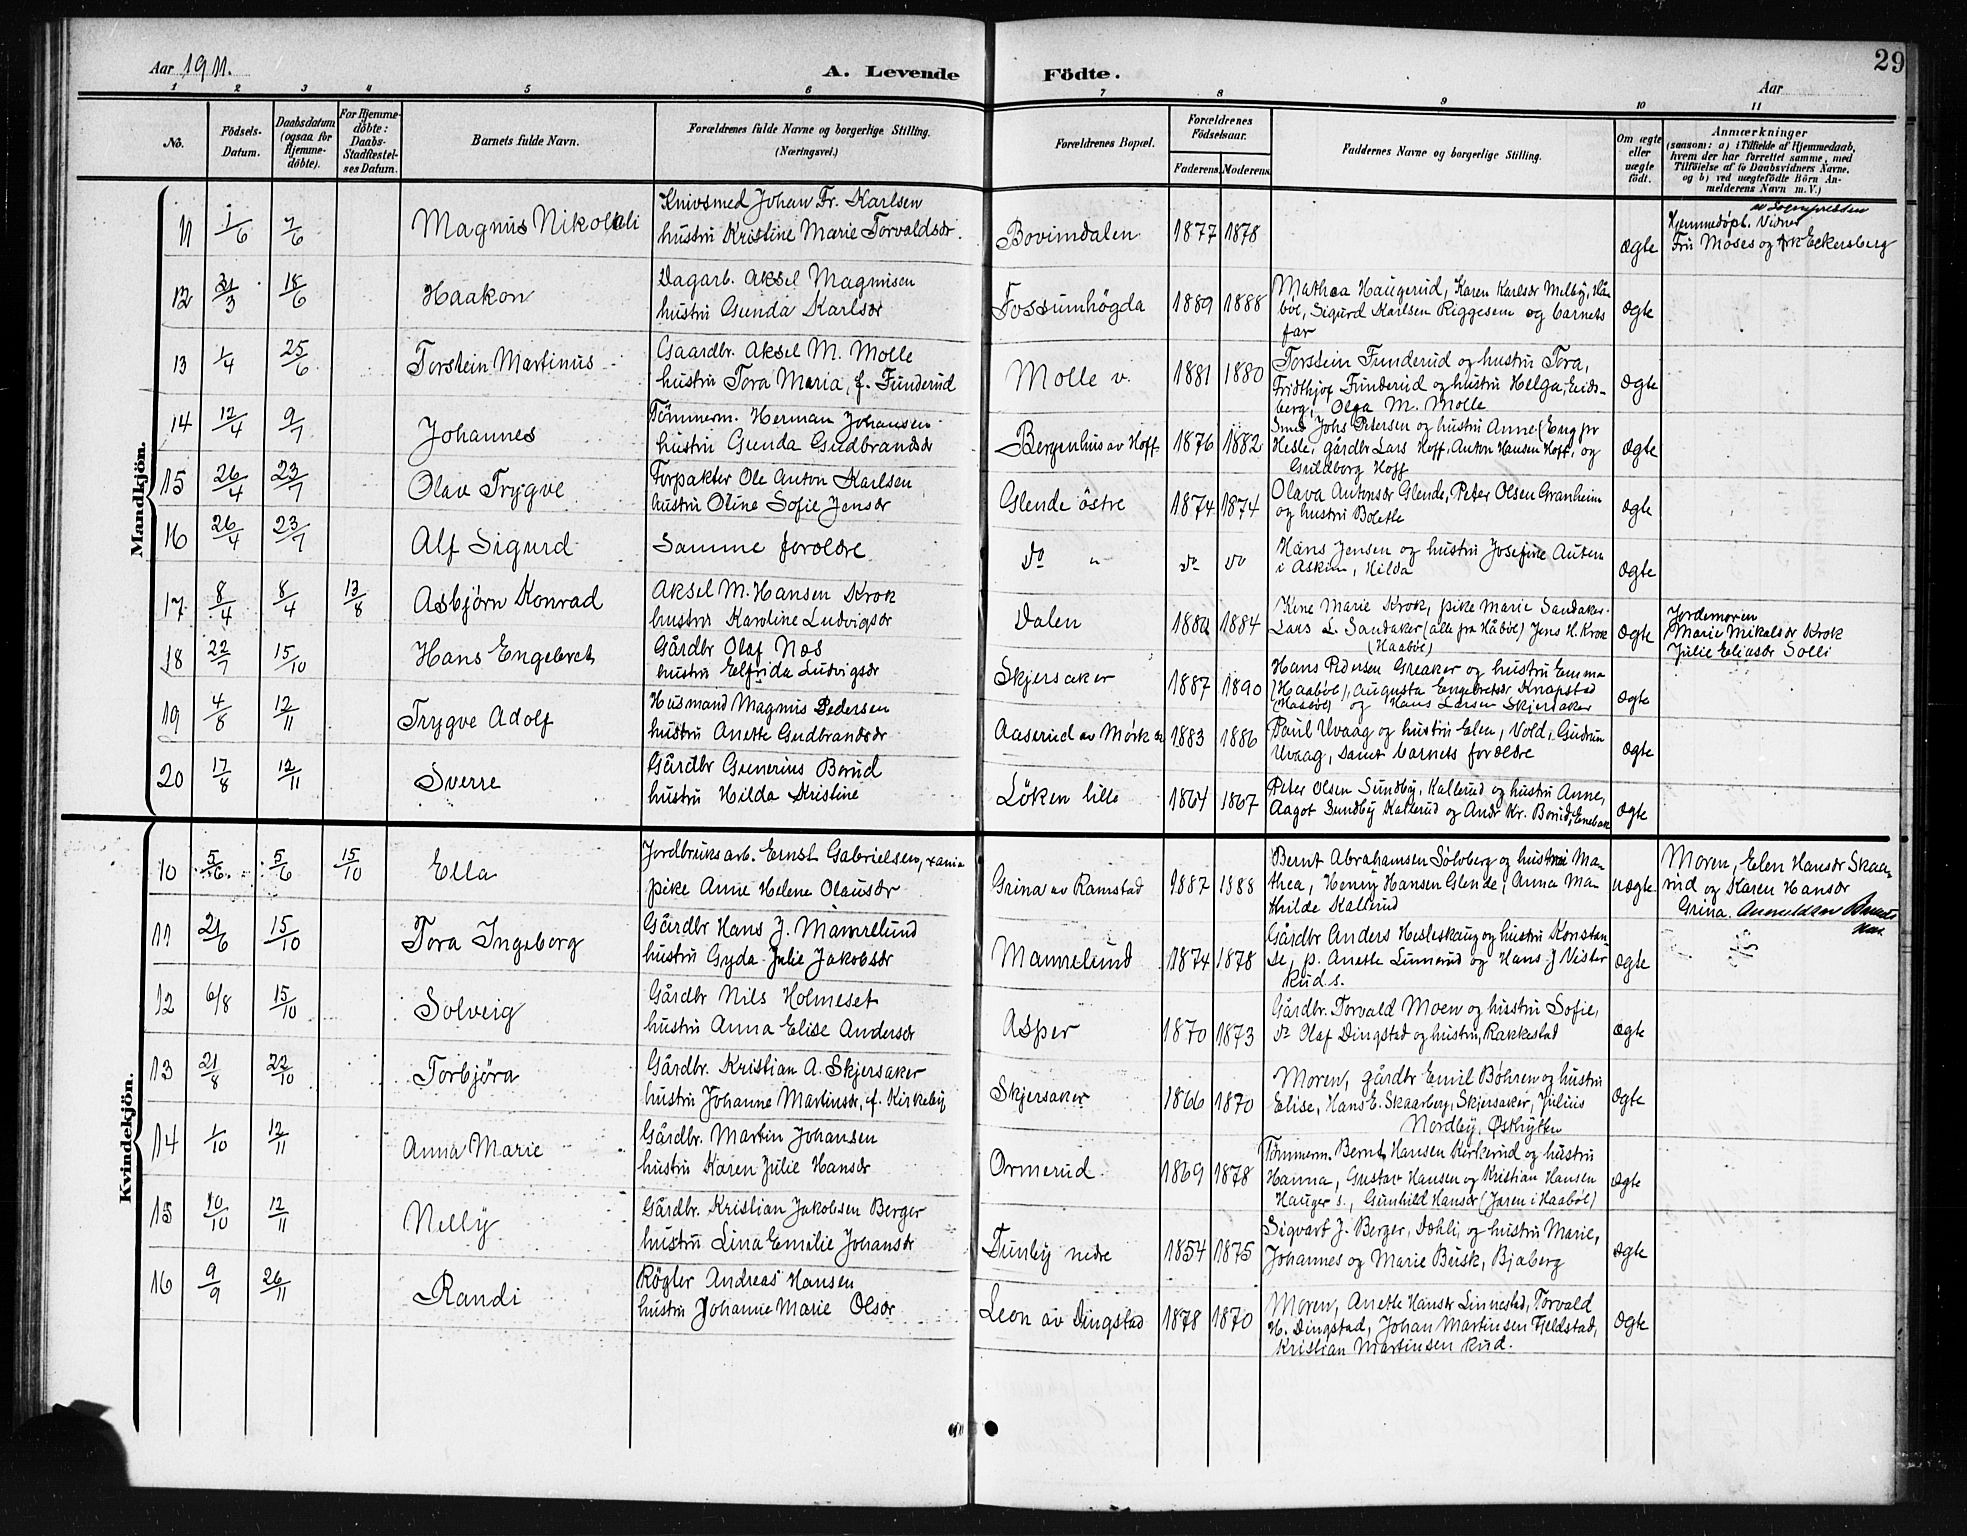 Aar 1911.
A. Levende Födte.
Aar
29
1 2 3 4 5 6 7 8 9 10 11
No.
Födsels-Datum.
Daabsdatum (ogsaa for Hjemme-döbte).
For Hjemme-döbte: Daabs-Stadfæstel-ses Datum.
Barnets fulde Navn.
Forældrenes fulde Navne og borgerlige Stilling. (Næringsvei.)
Forældrenes Bopæl.
Forældrenes Födselsaar.
Faderens. Moderens.
Faddernes Navne og borgerlige Stilling.
Om ægte eller uægte födt.
Anmærkninger
(saasom: a) i Tilfælde af Hjemmedaab, hvem der har forrettet samme, med Tilföielse af to Daabsvidners Navne, og b) ved uægtefödte Börn An-melderens Navn m. V.)
Mandkjön.
11 1/6 7/6 Magnus Nikolai
Knivsmed Johan Fr. Karlsen
hustru Kristine Marie Torvaldsdr.
Bovimdalen 1877 1878 ægte
Hjemmedöpt av Sognepresten Vidner
Fru Moses og frk Eckersberg
12 21/3 18/6 Haakon
Dagarb. Aksel Magnusen
hustru Gunda Karlsdr
Fossumhögda 1889 1888
Mathea Haugerud, Karen Karlsdr Melby, Haa-
böl, Sigurd Karlsen Riggesem og barnets
far
ægte
13 1/4 25/6 Torstein Martinus
Gaardbr. Aksel M. Molle
hustru Tora Maria, f. Funderud
Molle v. 1881 1880
Torstein Funderud og hustru Tora,
Fridthjof Funderud og hustru Helga, Eids-
berg, Olga M. Molle
ægte
14 12/4 9/7 Johannes
Tömmerm. Herman Johansen
hustru Gunda Gudbrandsdr
Bergenhus av Hoff 1876 1882
Smed Johs Petersen og hustru Anne (Eng pr
Hesle, gårdbr Lars Hoff, Anton Hansen Hoff, og
Guldborg Hoff
ægte
15 26/4 23/7 Olav Trygve
Forpakter Ole Anton Karlsen
hustru Oline Sofie Jensdr
Glende östre 1874 1874
Olava Antonsdr Glende, Peter Olsen Granheim
og hustru Bolette
ægte
16 26/4 23/7 Alf Sigurd
Samme forældre
do " do do
Hans Jensen og hustru Josefine Auten
i Askim, Hilda
ægte
17 8/4 8/4 13/8 Asbjörn Konrad
Aksel M. Hansen Krok
hustru Karoline Ludvigsdr
Dalen 1884
Kine Marie Krok, pike Marie Sandaker
Lars L. Sandaker (alle fra Håböl) Jens H. Krok
(Haaböl)
ægte
Jordemoren
Marie Mikalsdr Krok
Julie Eliasdr Solli
18 22/7 15/10 Hans Engebret
Gårdbr Olaf Næs
hustru Elfrida Ludvigsdr
Skjersaker 1887 1890
Hans Pedersen Greaker og hustru Emma
(Haaböl), Augusta Engebretsdr Knapstad
(Haaböl) og Hans Larsen Skjersaker
ægte
19 4/8 12/11 Trygve Adolf
Husmand Magnus Pedersen
hustru Anette Gudbrandsdr
Aaserud av Mörk 1883 1886
Paul Uvaag og hustru Elen, Vold, Gudrun
Uvaag, samt barnets forældre
ægte
20 17/8 12/11 Sverre
Gårdbr Grenerius Borud
hustru Hilda Kristine
Löken lille 1864 1867
Peter Olsen Sundby, Kallerud og hustru Anne,
Aagot Sundby Kallerud og Andr Kr. Borud, Enebak
ægte
Kvindekjön.
10 5/6 5/6 15/10 Ella
Jordbruksarb. Ernst Gabrielsen,
pike Anne Helene Olausdr
Grina av Ramstad 1887 1888
Bernt Abrahamsen Sölvberg og hustru Ma-
thea, Henry Hansen Glende, Anna Ma-
thilde Kallerud
uægte
Moren, Elen Hansdr Skaa-
rud og Karen Hansdr
Grina. Anmelder Barnets
11 21/6 15/10 Tora Ingeborg
Gårdbr Hans J. Mamrelund
hustru Gyda Julie Jakobsdr
Mamrelund 1874 1878
Gårdbr Anders Hesleskaug og hustru Konstan-
se, p. Anette Linnerud og Hans J Vister
Rud s.
ægte
12 6/8 15/10 Solveig
Gårdbr Nils Holmeset
hustru Anna Elise Andersdr
Asper 1870 1873
Gårdbr. Torvald Moen og hustru Sofie,
do Olaf Dingstad og hustru, Rakkestad
ægte
13 21/8 22/10 Torbjöra
Gårdbr. Kristian A. Skjersaker
hustru Johanne Martinsdr, f. Kirkeby
Skjersaker 1866 1870
Moren, gårdbr Emil Böhren og hustru
Elise, Hans E. Skaarberg, Skjersaker, Julius
Nordby, Östbytten
ægte
14 1/10 12/11 Anna Marie
Gårdbr. Martin Johansen
hustru Karen Julie Hansdr
Ormerud 1869 1878
Tömmerm. Bernt Hansen Kirkerud og hustru
Hanna, Gustav Hansen og Kristian Hansen
Hauger s., Gunhild Hansdr (Jaren i Haaböl)
ægte
15 10/10 12/11 Nelly
Gårdbr. Kristian Jakobsen Berger
hustru Lina Emilie Johansdr
Tunby nedre 1854 1875
Sigvart J. Berger, Dæhli, og hustru Marie,
Johannes og Marie Busk, Bjaberg
ægte
16 9/9 26/11 Randi
Rögter Andreas Hansen
hustru Johanne Marie Olsdr
Leon av Dingstad 1878 1870
Moren, Anette Hansdr Linnestad, Torvald
H. Dingstad, Johan Martinsen Fjeldstad,
Kristian Martinsen Rud.
ægte